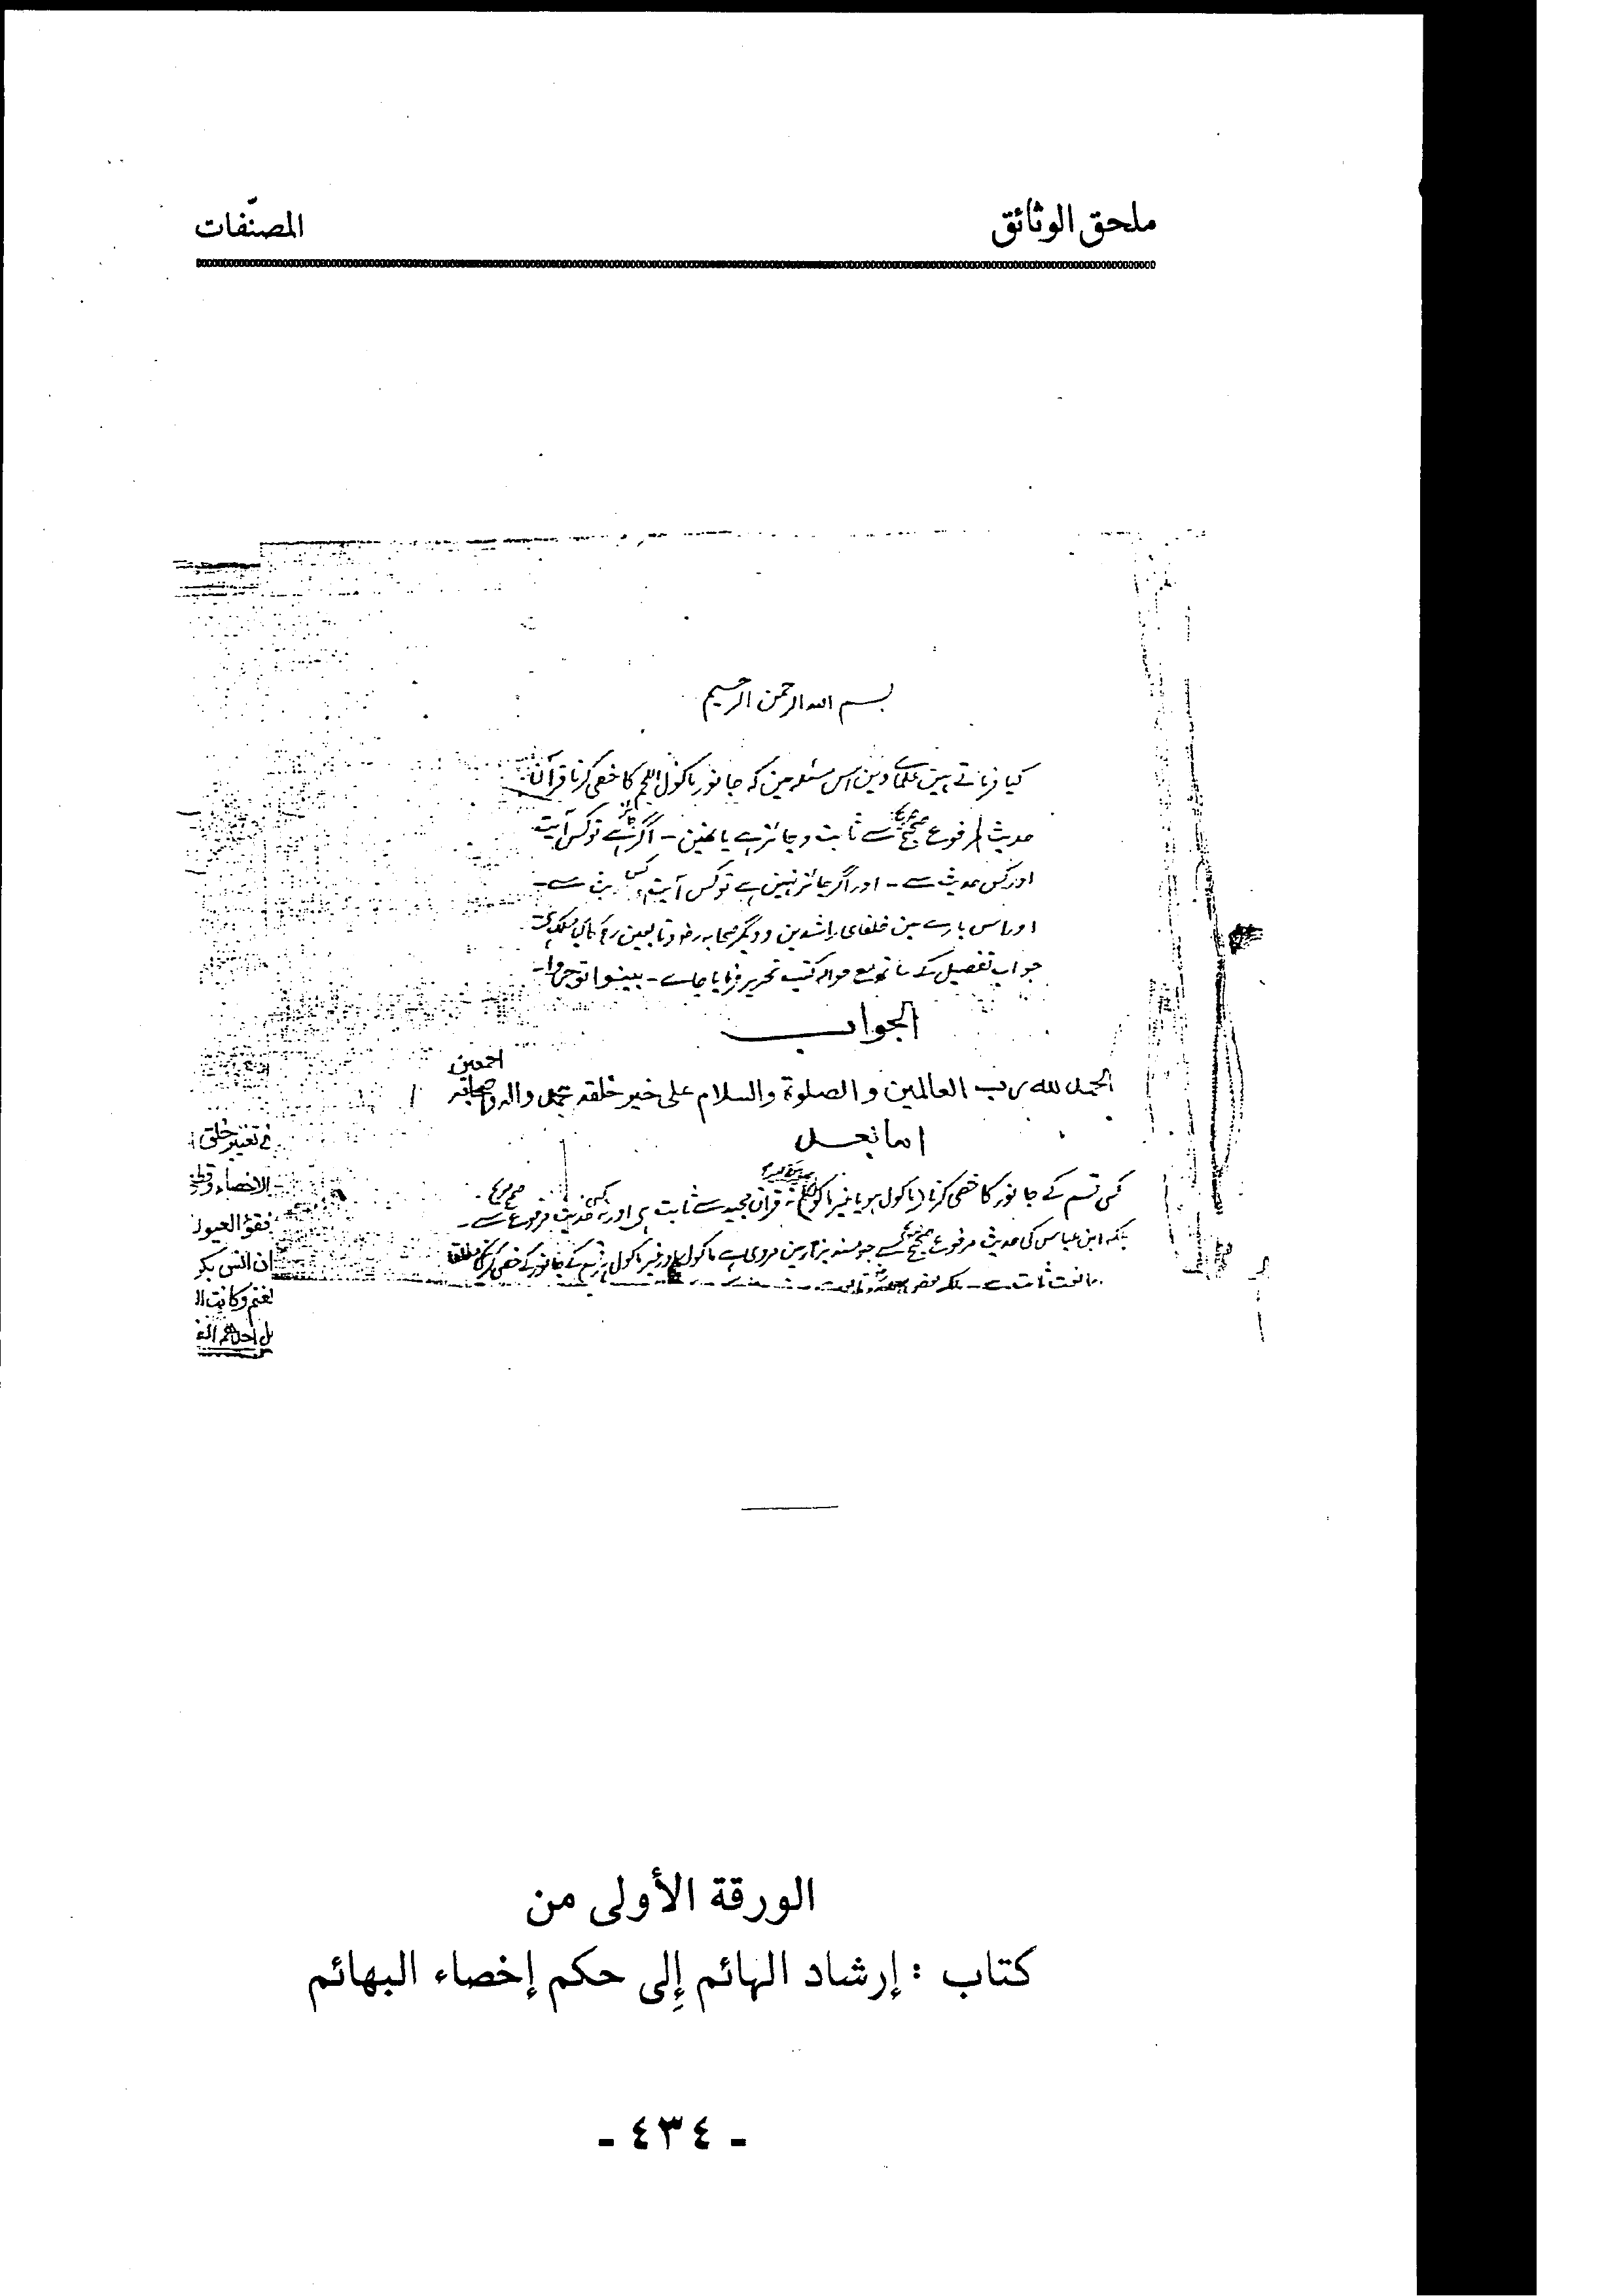 ملحق الوثائق
المصنّفات
بسم الله الرحمن الرحيم
کیا فرماتے ہین علماے دین اس مسئلہ مین کہ جانور ماکول اللحم کا خصی کرنا قرآن
حدیث مرفوع صحیح سے ثابت و جائز ہے یا نہین - اگر ہے توکس آیت
اورکس حدیث سے - اور اگر جائز نہین ہے توکس آیت
اور اس بارے مین خلفای راشدین و دیگر صحابہ رض و تابعین
جواب تفصیل کے ساتھ مع حوالہ کتب تحریر فرمایا جاے - بینوا توجروا -
الجواب
الحمد لله رب العالمين و الصلوة والسلام على خير خلقه محمد واله وصحابته
اجمعين
اما بعد
کسی قسم کے جانور کا خصی کرنا (ماکول ہو یا غیر ماکول) نہ قرآن مجید سے ثابت ہی اور نہ کسی حدیث مرفوع سے -
بلکہ ابن عباس کی حدیث مرفوع صحیح سے جو مسند بزار مین مروی ہے ماکول اور غیر ماکول ہر قسم کے جانور کے خصی کرنیکا مطلقا
مانعت ثابت ہے - بلکہ بعض
تغير خلق
الاخصاء و
فقؤ العيون
ان انس بكر
لغنم وكانت
الورقة الأولى من
كتاب : إرشاد الهائم إلى حكم إخصاء البهائم
- ٤٣٤ -